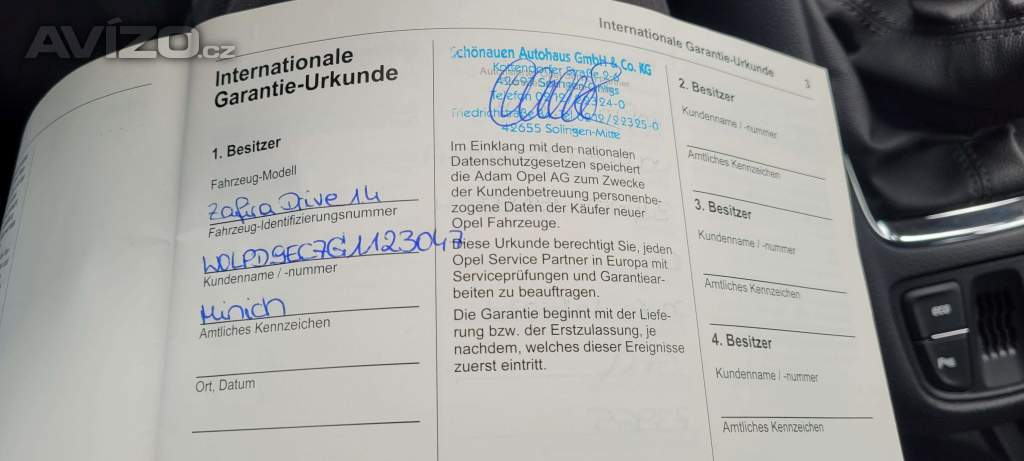 AVÍZO.cz
Internationale Garantie-Urkunde
3
Internationale
Garantie-Urkunde
1. Besitzer
Fahrzeug-Modell
Zafira Drive 1.4
Fahrzeug-Identifizierungsnummer
W0LPD9EC7G1123047
Kundenname / -nummer
Minich
Amtliches Kennzeichen
Ort, Datum
Schönauen Autohaus GmbH & Co. KG
Straße 2-8
Solingen-Ohligs
Telefon
42655 Solingen-Mitte
Im Einklang mit den nationalen
Datenschutzgesetzen speichert
die Adam Opel AG zum Zwecke
der Kundenbetreuung personenbe-
zogene Daten der Käufer neuer
Opel Fahrzeuge.
Diese Urkunde berechtigt Sie, jeden
Opel Service Partner in Europa mit
Serviceprüfungen und Garantiear-
beiten zu beauftragen.
Die Garantie beginnt mit der Liefe-
rung bzw. der Erstzulassung, je
nachdem, welches dieser Ereignisse
zuerst eintritt.
2. Besitzer
Kundenname / -nummer
Amtliches Kennzeichen
3. Besitzer
Kundenname / -nummer
Amtliches Kennzeichen
4. Besitzer
Kundenname / -nummer
Amtliches Kennzeichen
eco